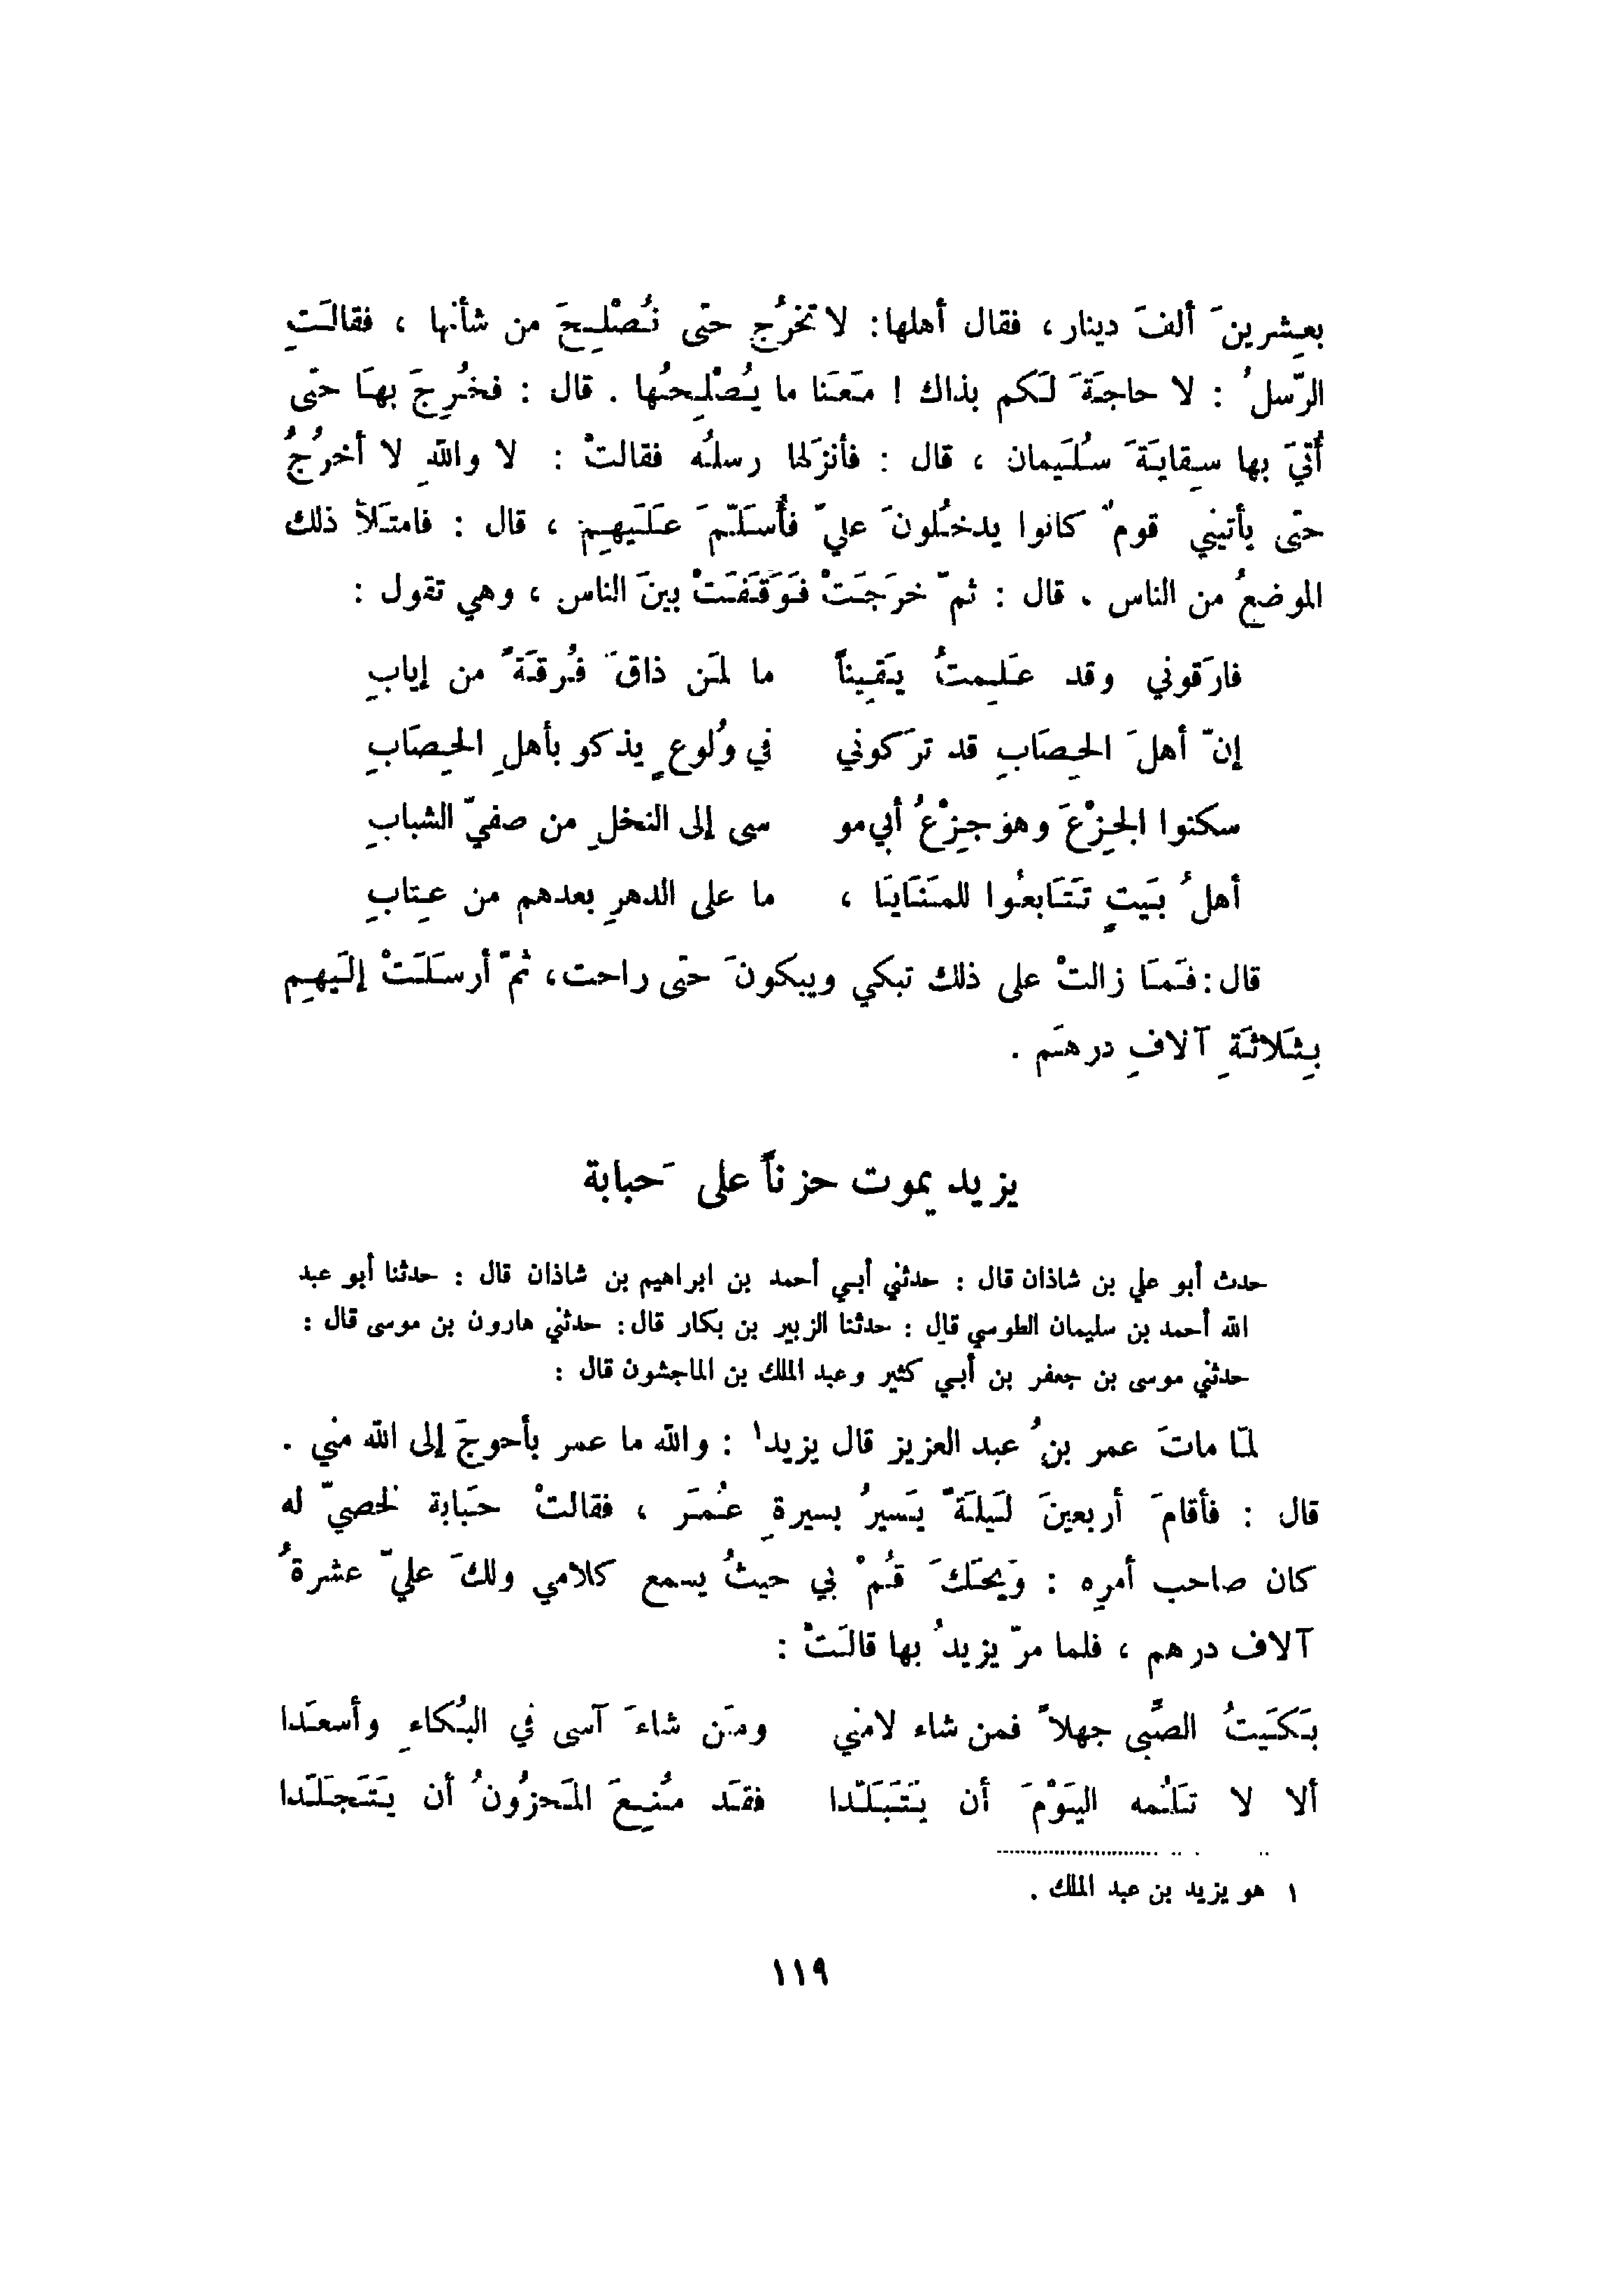 بعِشرينَ ألفَ دينار ، فقال أهلها : لا تخرُج حتّى نُصْلِحَ من شأنها ، فقالَتِ
الرّسلُ : لا حاجَةَ لَكم بذاك ! مَعَنا ما يُصْلِحُها . قال : فخُرِجَ بهَا حتّى
أُتيَ بها سِقايَةَ سُلَيمان ، قال : فأنزَلها رسلُه فقالتْ : لا واللهِ لا أخرُجُ
حتّى يأتيني قومٌ كانوا يدخُلونَ عليّ فأُسَلّمَ عَلَيهِم ، قال : فامتَلأ ذلك
الموضعُ من الناس . قال : ثمّ خرَجَتْ فَوَقَفَتْ بينَ الناس ، وهي تقول :
فارَقوني وقد عَلِمتُ يَقِيناً ما لمَن ذاقَ فُرقَةً من إيابِ
إنّ أهلَ الحِصَابِ قد ترَكوني في وُلوعٍ يذكو بأهلِ الحِصَابِ
سكنوا الجِزْعَ وهوَ جِزْعُ أبي مو سى إلى النخلِ من صفيّ الشبابِ
أهلُ بَيتٍ تَتَابعُوا للمَنَايَا ، ما على الدهرِ بعدهم من عِتابِ
قال : فَمَا زالتْ على ذلك تبكي ويبكونَ حتى راحت ، ثمّ أرسَلَتْ إلَيهِم
بِثَلاثَةِ آلافِ درهَم .
يزيد يموت حزناً على حَبابة
حدث أبو علي بن شاذان قال : حدثني أبي أحمد بن ابراهيم بن شاذان قال : حدثنا أبو عبد
الله أحمد بن سليمان الطوسي قال : حدثنا الزبير بن بكار قال : حدثني هارون بن موسى قال :
حدثني موسى بن جعفر بن أبي كثير وعبد الملك بن الماجشون قال :
لمّا ماتَ عمر بنُ عبد العزيز قال يزيد١ : والله ما عمر بأحوجَ إلى الله مني .
قال : فأقامَ أربعينَ لَيلَةً يَسيرُ بسيرةِ عُمَرَ ، فقالتْ حَبابة لخصيّ له
كان صاحب أمرِه : وَيحَكَ قُمْ بي حيثُ يسمع كلامي ولكَ عليّ عشرةُ
آلاف درهم ، فلما مرّ يزيدُ بها قالَتْ :
بَكَيتُ الصِّبى جهلاً فمن شاء لامني ومَن شاءَ آسى في البُكاءِ وأسعَدا
ألا لا تَلُمه اليَوْمَ أن يَتَبَلّدا فقَد مُنِعَ المَحزُونُ أن يَتَجَلّدا
١ هو يزيد بن عبد الملك .
١١٩